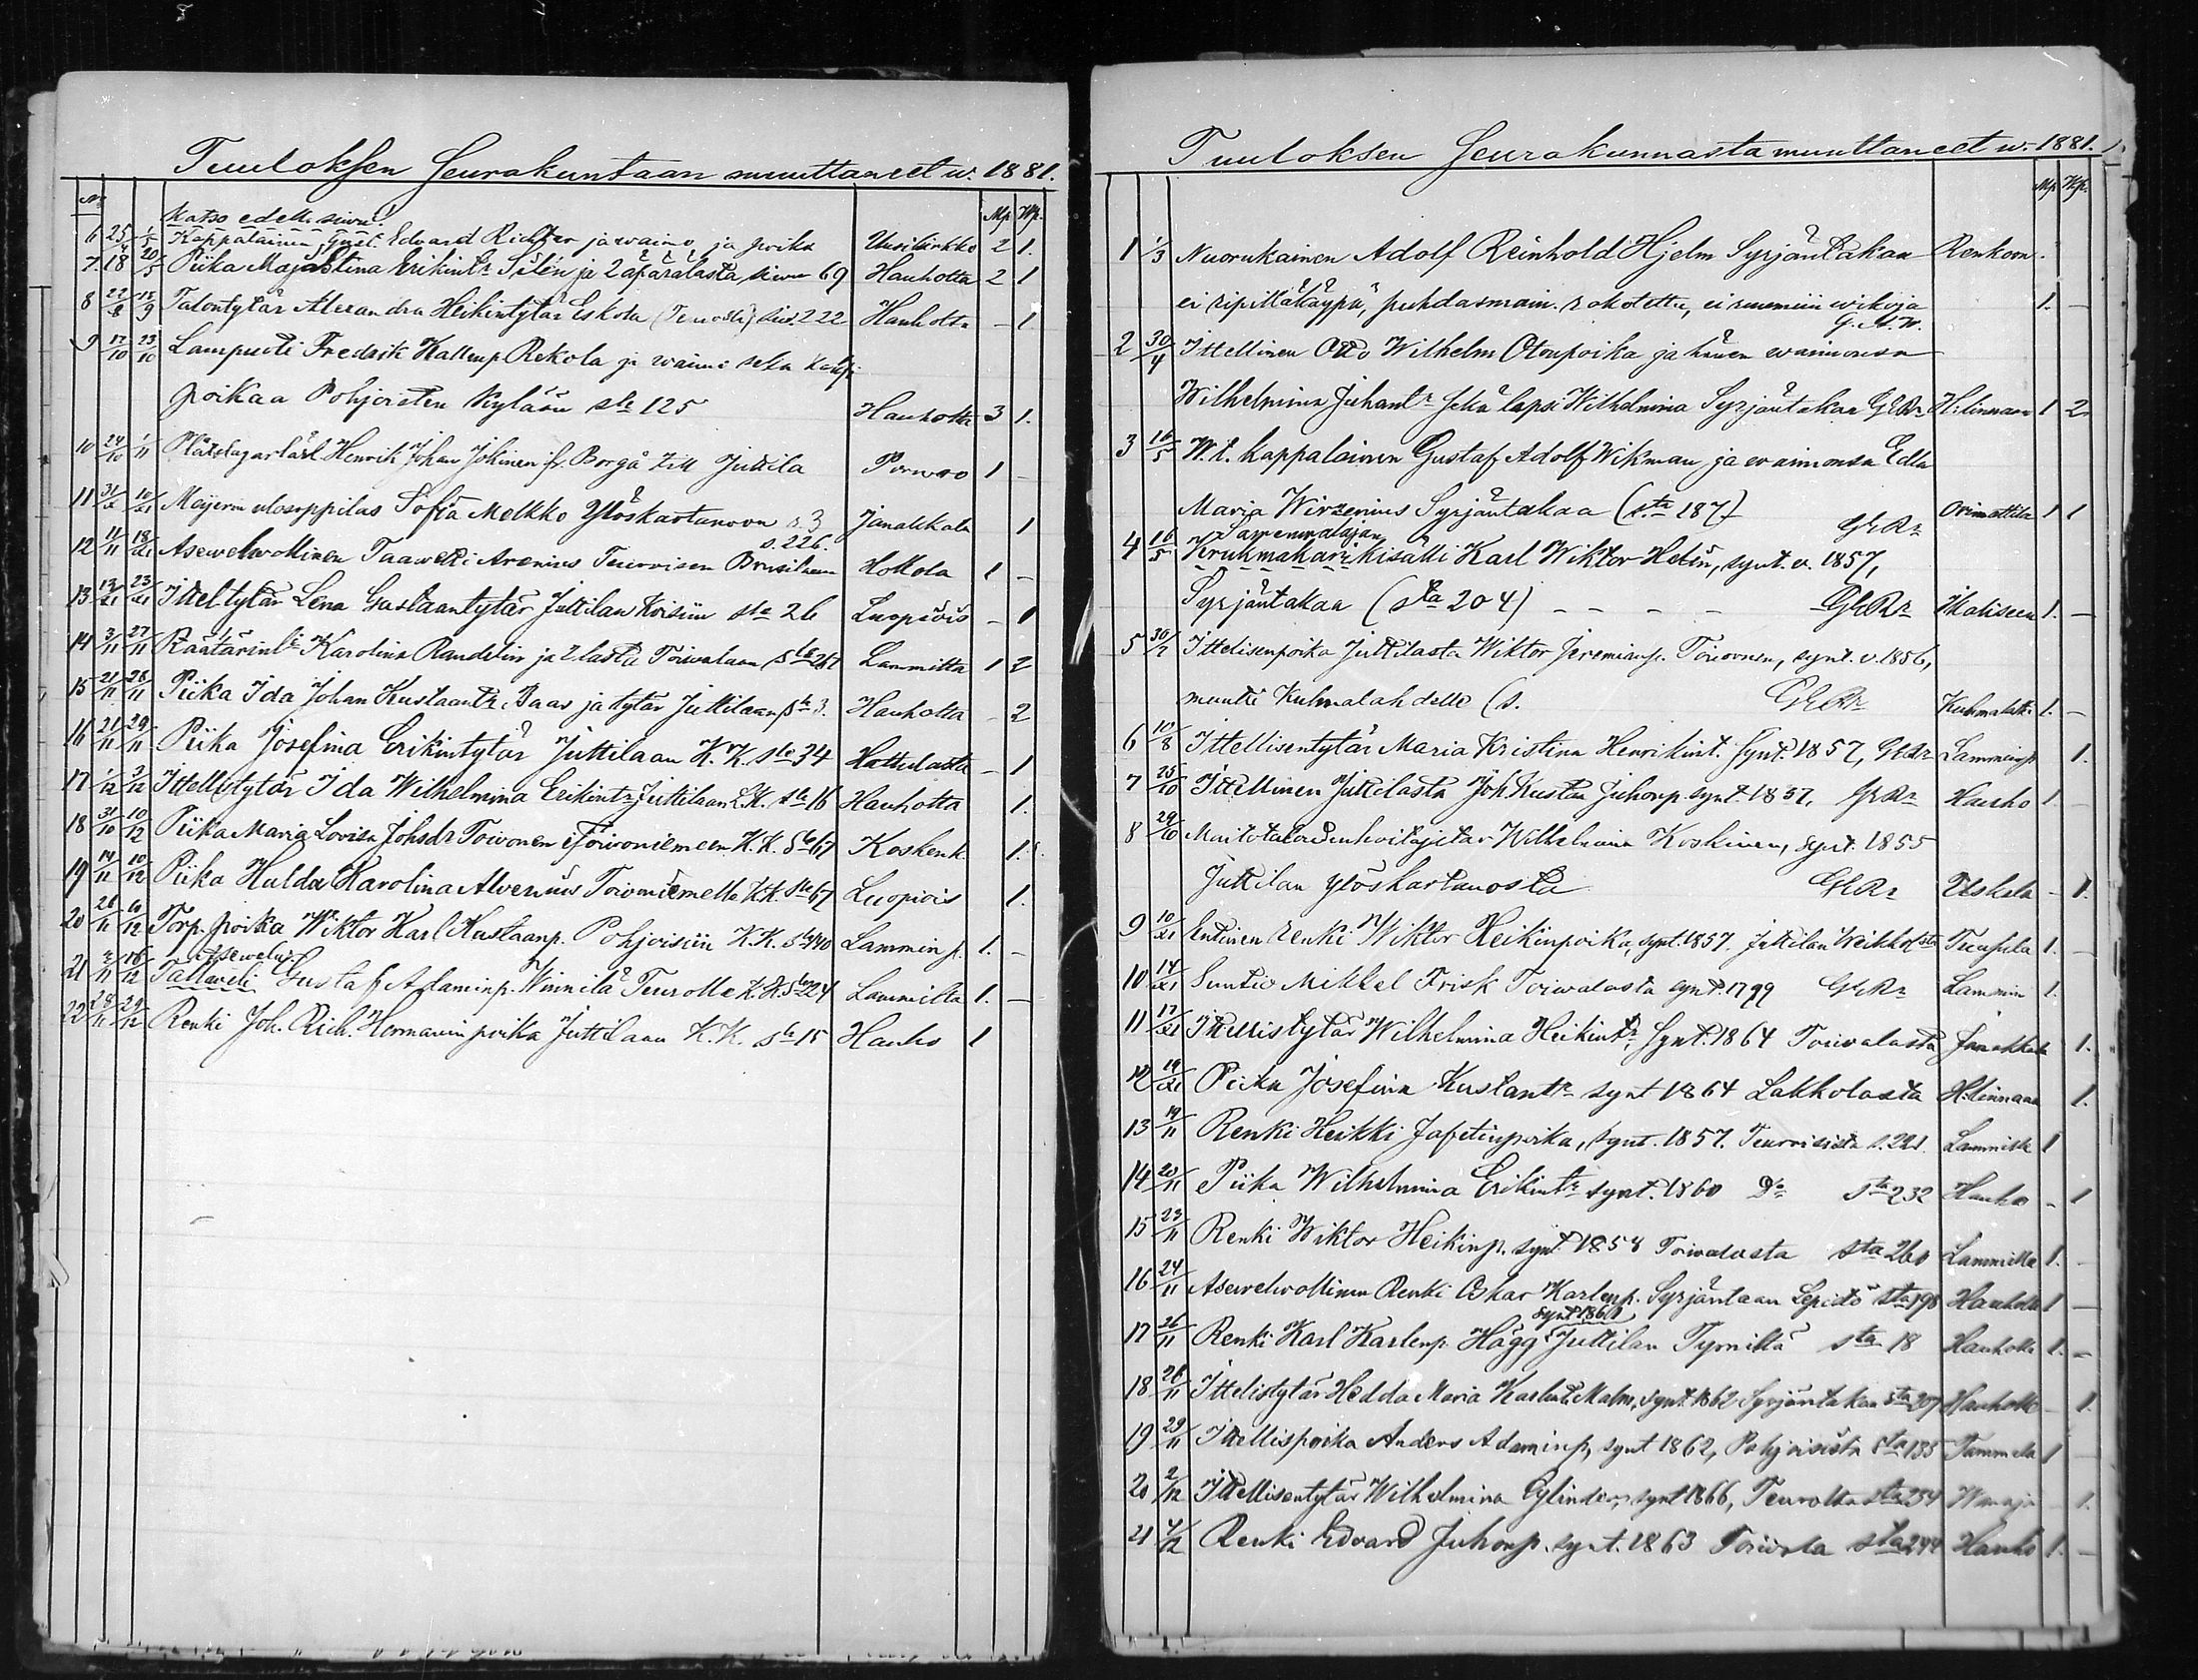 Tuuloksen Seurakuntaan muuttaneet w. 1881.
No Mp Wp.
Katso edell. sivu!
6 25/4 1/5 Kappalainen Gust. Edvard Richter ja waimo ja poika Uusikirkko 2 1.
7. 18 20/5 Piika Maja Stina Erikintr Silén ja 2 äpärälasta, siwu 69 Hauholta 2 1
8 22/8 18/9 Talontytär Alexandra Heikintytär Eskola (Teuroilla) siv. 222 Hauholta - 1
9 17/10 23/10 Lampuoti Fredrik Kallenp Rekola ja waimo sekä kaksi
poikaa Pohjoisten Kylään sta 125 Hauholta 3 1.
10 24/10 1/11 Plåtslagarlärl. Henrik Johan Jokinen fr. Borgå till Juttila Porwoo 1 -
11 31/x 10/xi Meijerin oppilas Sofia Melkko Yläskartanoon s. 3 Janakkala 1
12 11/11 18/xi Asewelwollinen Taawetti Arenius Teuroisen Brusilaan s. 226. Hollola 1 -
13 13/xi 23/xi Ittel tytär Lena Gustaantytär Juttilan Koisiin sta 26 Luopiois - 1
14 3/11 27/11 Räätärinl. Karolina Randelin ja 2 lasta Toiwalaan Lammilta 1 2
15 21/11 28/11 Piika Ida Johan Kustaantr. Baas ja tytär Juttilaan s. 3. Hauholta - 2
16 21/11 29/11 Piika Josefina Erikintytär Juttilaan K.K. sta 34 Hattulasta - 1
17 1/12 3/12 Ittell. tytär Ida Wilhelmina Erikintr Juttilaan L.K. sta 16 Hauholta 1.
18 31/10 10/12 Piika Maria Lovisa Johsdr Toivonen Toivoniemeen K.K. S. 67 Koskenk. 1.
19 14/11 10/12 Piika Hulda Karolina Alvenius Toivoniemelle K.K. sta 67 Luopiois 1.
20 26/11 10/12 Torp. poika Wiktor Karl Kustaanp. Pohjoisiin K.K. S. 140 Lammin p. 1. -
Asewelw.
21 2/11 16/12 Tallaveli Gustaf Adaminp. Winnilä Teurolla K.K. S. 224 Lammilta 1. -
22 28/11 29/12 Renki Joh. Rich. Hermanninpoika Juttilaan K.K. s. 15 Hauho 1
Tuuloksen Seurakunnasta muuttaneet w. 1881.
Mp. Wp.
1 1/3 Nuorukainen Adolf Reinhold Hjelm Syrjäntakaa Renkoon
ei ripillä käypä, puhdasmain. rokotettu, ei suumiin wikoja 1. -
G.A.W.
2 30/4 Ittellinen Otto Wilhelm Otonpoika ja hänen waimonsa
Wilhelmina Juhantr sekä lapsi Wilhelmina Syrjäntakaa GERr H:linnaan 1 2
3 16/5 W.t. kappalainen Gustaf Adolf Wikman ja waimonsa Edla
Maria Wirzenius Syrjäntakaa (sta 187) GERr Orimattila 1 1
Sawenwalajan
4 16/5 Krukmakarikisälli Karl Wiktor Helin, synt. v. 1857,
Syrjäntakaa (sta 204) - - - - GERr Ikaliseen 1. -
5 30/7 Ittelisenpoika Juttilasta Wiktor Jeremianp. Toivonen, synt. v. 1856,
muutti Kuhmalahdelle (s. GERr Kuhmalahti 1. -
6 10/8 Ittellisentytär Maria Kristina Henrikint. Synt. 1857, GERr Lamminp 1.
7 25/10 Ittellinen Juttilasta Joh Kustaa Juhonp. synt. 1857, GERr Hauho 1 -
8 29/10 Maitotaloudenhoitajatar Wilhelmina Koskinen, synt. 1855
Juttilan Yläskartanosta GERr Uskela - 1.
9 10/xi Entinen renki Wiktor Heikinpoika, synt. 1857. Juttilan Weikkolsta Tuusula 1. -
10 14/xi Suntio Mikkel Frisk Toiwalasta synt. 1799 GERr Lammin 1.
11 17/xi Ittellistytär Wilhelmina Heikintr, Synt. 1864 Toiwalasta Janakkala 1.
12 19/xi Piika Josefiina Kustantr synt 1864 Lakkolasta H:linnaan 1.
13 19/11 Renki Heikki Jafetinpoika, synt. 1857. Teuroisista s. 221 Lammille 1
14 20/11 Piika Wilhelmina Erikintr synt. 1860 Do sta 232 Hauho - 1
15 23/11 Renki Wiktor Heikinp. synt. 1858 Toiwalasta sta 260 Lammille 1. -
16 24/11 Asewelwollinen Renki Oskar Karlenp. Syrjäntaan Lepistö sta 198 Hauholle 1 -
synt 1860
17 26/11 Renki Karl Karlenp. Hägg Juttilan Tyrnillä sta 18 Hauholle 1. -
18 28/11 Ittelistytär Hedda Maria Karlentr Malm, synt. 1862 Syrjäntakaa sta 207 Hauholle - 1.
19 29/11 Ittellispoika Anders Adaminp, synt 1862, Pohjoisista sta 135 Tammela 1
20 2/12 Ittellisentytär Wilhelmina Cylinder, synt 1866, Teurolta sta 234 - 1.
21 4/12 Renki Edvard Juhonp. synt. 1863 Toiwola sta 244 Hauho 1. -